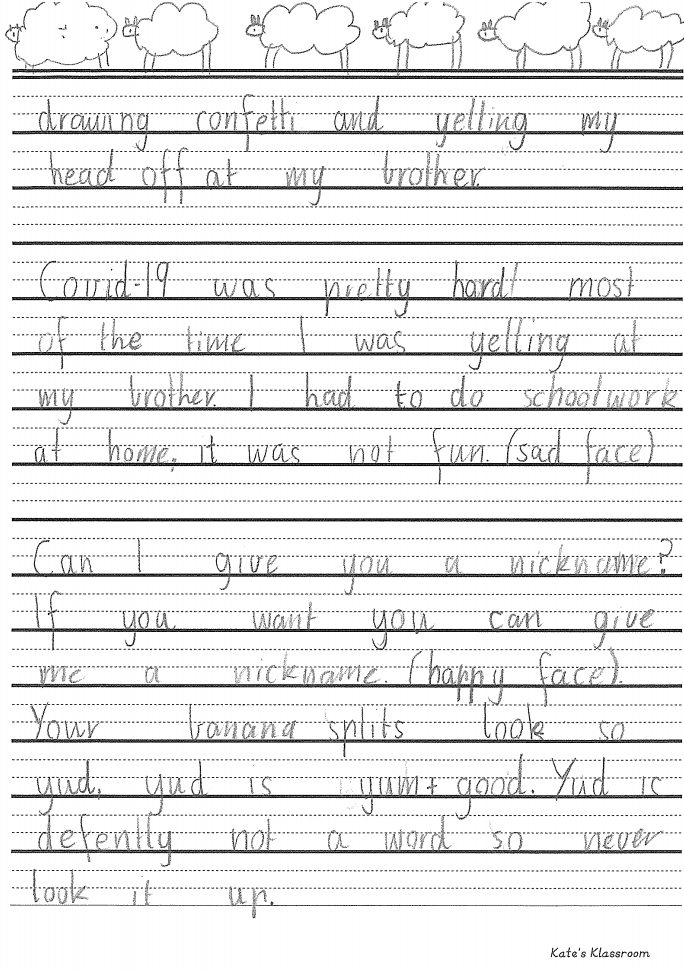 drawing confetti and yelling my
head off at my brother.
Covid-19 was pretty hard! most
of the time I was yelling at
my brother. I had to do schoolwork
at home, it was not fun. (sad face)
Can I give you a nickname?
If you want you can give
me a nickname. (happy face).
Your banana splits look so
yud. yud is yum + good. Yud is
defently not a word so never
look it up.
Kate's Klassroom